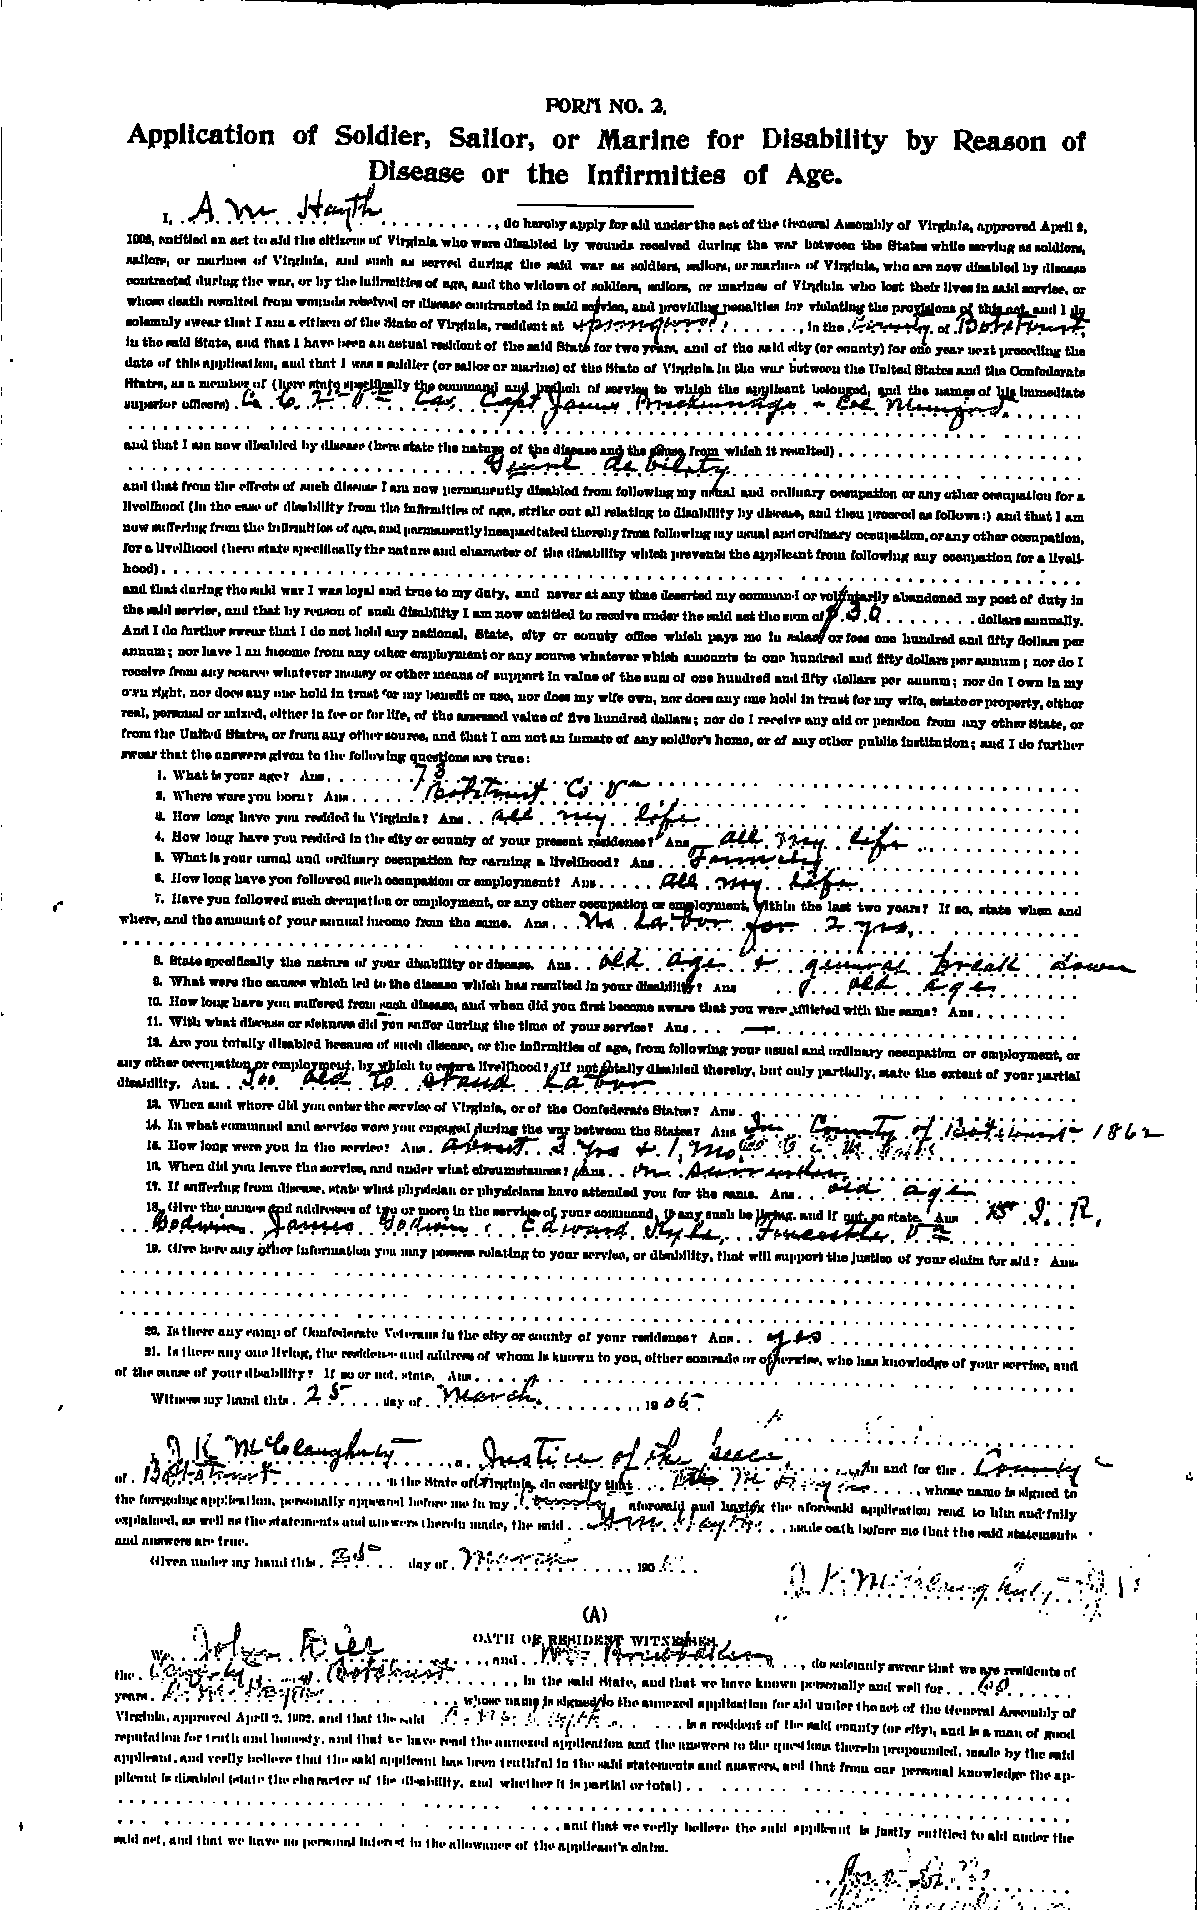 FORM NO. 2.
Application of Soldier, Sailor, or Marine for Disability by Reason of
Disease or the Infirmities of Age.
I, A M Hayth, do hereby apply for aid under the act of the General Assembly of Virginia, approved April 2,
1902, entitled an act to aid the citizens of Virginia who were disabled by wounds received during the war between the States while serving as soldiers,
sailors, or marines of Virginia, and such as served during the said war as soldiers, sailors, or marines of Virginia, who are now disabled by disease
contracted during the war, or by the infirmities of age, and the widows of soldiers, sailors, or marines of Virginia who lost their lives in said service, or
whose death resulted from wounds received or disease contracted in said service, and providing penalties for violating the provisions of this act, and I do
solemnly swear that I am a citizen of the State of Virginia, resident at Springwood, in the County of Botetourt
in the said State, and that I have been an actual resident of the said State for two years, and of the said city (or county) for one year next preceding the
date of this application, and that I was a soldier (or sailor or marine) of the State of Virginia in the war between the United States and the Confederate
States, as a member of (here state specifically the command and branch of service to which the applicant belonged, and the names of his immediate
superior officers) Co C 2nd Va Cav Capt James Breckinridge & Col Munford
and that I am now disabled by disease (here state the nature of the disease and the cause from which it resulted)
debility
and that from the effects of such disease I am now permanently disabled from following my usual and ordinary occupation or any other occupation for a
livelihood (in the case of disability from the infirmities of age, strike out all relating to disability by disease, and then proceed as follows:) and that I am
now suffering from the infirmities of age, and permanently incapacitated thereby from following my usual and ordinary occupation, or any other occupation,
for a livelihood (here state specifically the nature and character of the disability which prevents the applicant from following any occupation for a liveli-
hood)
and that during the said war I was loyal and true to my duty, and never at any time deserted my command or voluntarily abandoned my post of duty in
the said service, and that by reason of such disability I am now entitled to receive under the said act the sum of $30 dollars annually.
And I do further swear that I do not hold any national, State, city or county office which pays me in salary or fees one hundred and fifty dollars per
annum; nor have I an income from any other employment or any source whatever which amounts to one hundred and fifty dollars per annum; nor do I
receive from any source whatever money or other means of support in value of the sum of one hundred and fifty dollars per annum; nor do I own in my
own right, nor does any one hold in trust for my benefit or use, nor does my wife own, nor does any one hold in trust for my wife, estate or property, either
real, personal or mixed, either in fee or for life, of the assessed value of five hundred dollars; nor do I receive any aid or pension from any other State, or
from the United States, or from any other source, and that I am not an inmate of any soldier's home, or of any other public institution; and I do further
swear that the answers given to the following questions are true:
1. What is your age? Ans. 73
2. Where were you born? Ans Botetourt Co Va
3. How long have you resided in Virginia? Ans. all my life
4. How long have you resided in the city or county of your present residence? Ans all my life
5. What is your usual and ordinary occupation for earning a livelihood? Ans. Farming
6. How long have you followed such occupation or employment? Ans. all my life
7. Have you followed such occupation or employment, or any other occupation or employment, within the last two years? If so, state when and
where, and the amount of your annual income from the same. Ans. No Labor for 2 yrs.
8. State specifically the nature of your disability or disease. Ans old age & general break down
9. What were the causes which led to the disease which has resulted in your disability? Ans old age
10. How long have you suffered from such disease, and when did you first become aware that you were afflicted with the same? Ans.
11. With what disease or sickness did you suffer during the time of your service? Ans.
12. Are you totally disabled because of such disease, or the infirmities of age, from following your usual and ordinary occupation or employment, or
any other occupation or employment, by which to earn a livelihood? If not totally disabled thereby, but only partially, state the extent of your partial
disability. Ans. Too old to stand Labor
13. When and where did you enter the service of Virginia, or of the Confederate States? Ans.
14. In what command and service were you engaged during the war between the States? Ans In County of Botetourt 1862
15. How long were you in the service? Ans. about 3 Yrs & 1 Mo
16. When did you leave the service, and under what circumstances? Ans. on surrender
17. If suffering from disease, state what physician or physicians have attended you for the same. Ans. old age
18. Give the names and addresses of two or more in the service of your command, if any such be living, and if not, so state. Ans J. R.
Godwin James Godwin Edward Kyle, Fincastle Va
19. Give here any other information you may possess relating to your service, or disability, that will support the justice of your claim for aid? Ans.
20. Is there any camp of Confederate Veterans in the city or county of your residence? Ans. yes
21. Is there any one living, the residence and address of whom is known to you, either comrade or otherwise, who has knowledge of your service, and
of the cause of your disability? If so or not, state. Ans.
Witness my hand this 25 day of March 1905
I, J K McClaugherty, a Justice of the peace, in and for the County
of Botetourt in the State of Virginia, do certify that M Hayth, whose name is signed to
the foregoing application, personally appeared before me in my County aforesaid and having the aforesaid application read to him and fully
explained, as well as the statements and answers therein made, the said A M Hayth, made oath before me that the said statements
and answers are true.
Given under my hand this 25 day of March, 190
J. K. McClaugherty
(A)
OATH OF RESIDENT WITNESSES.
We, John, and, do solemnly swear that we are residents of
the County of Botetourt, in the said State, and that we have known personally and well for
years A. M. Hayth, whose name is signed to the annexed application for aid under the act of the General Assembly of
Virginia, approved April 2, 1902, and that the said A. M. Hayth is a resident of the said county (or city), and is a man of good
reputation for truth and honesty, and that we have read the annexed application and the answers to the questions therein propounded, made by the said
applicant, and verily believe that the said applicant has been truthful in the said statements and answers, and that from our personal knowledge the ap-
plicant is disabled (state the character of the disability, and whether it is partial or total)
and that we verily believe the said applicant is justly entitled to aid under the
said act, and that we have no personal interest in the allowance of the applicant's claim.